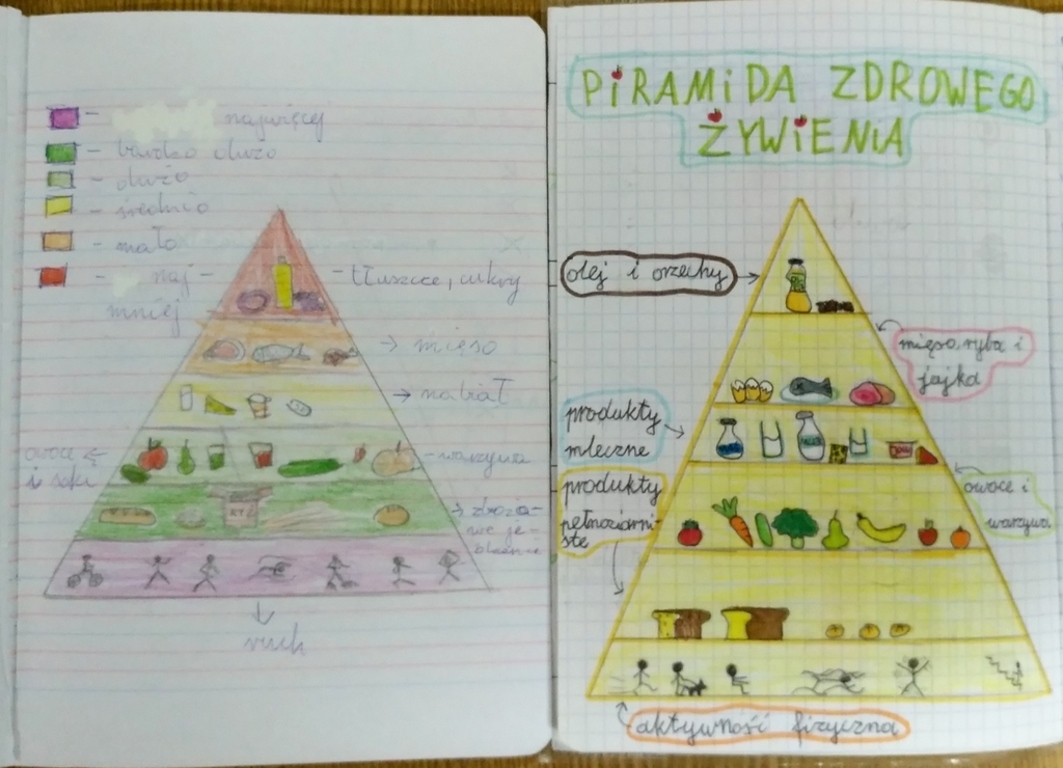 najwięcej
- bardzo dużo
- dużo
- średnio
- mało
- naj -
mniej
- tłuszcze, cukry
→ mięso
→ nabiał
owoce
i soki
- warzywa
RYŻ
→ zbożo-
we je-
ruch
PIRAMIDA ZDROWEGO
ŻYWIENIA
olej i orzechy
mięso, ryba i
jajka
produkty
mleczne
produkty
pełnoziarni-
ste
owoce i
warzywa
aktywność fizyczna